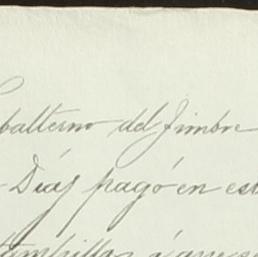 balterno del Timbre
Díaz pagó en est
tambrillas á que s